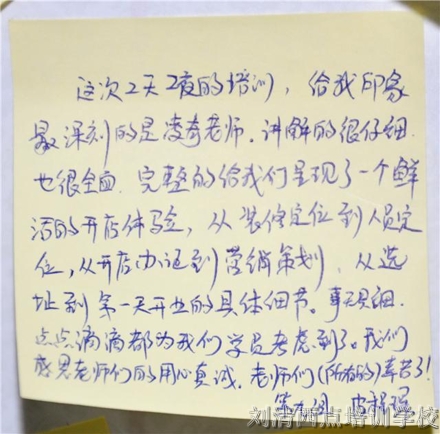 这次2天2夜的培训，给我印象
最深刻的是凌老师．讲解的很仔细．
也很全面．完整的给我们呈现了一个鲜
活的开店体验，从装修定位到人员定
位，从开店办证到营销策划．从选
址到第一天开业的具体细节。事无巨细．
点点滴滴都为我们学员考虑到了。我们
感恩老师们的用心真诚．老师们(所有的)辛苦了！
第九组
刘清西点培训学校